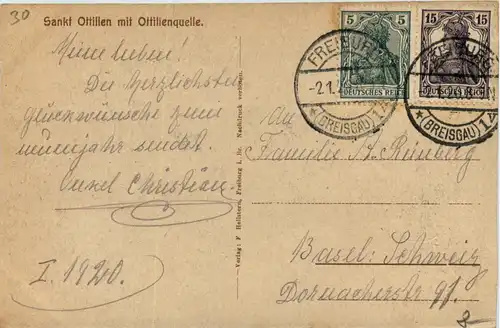 30
Sankt Ottilien mit Ottilienquelle.
Meine lieben!
Die herzlichsten
glückwünsche zum
neuenjahr sendet.
onkel Christian
I. 1920.
Verlag: F Hollstern, Freiburg i. Br. Nachdruck verboten.
5 5
DEUTSCHES REICH
15 15
DEUTSCHES REICH
FREIBURG
-2.1.
*(BREISGAU)1
*(BREISGAU)1
An
Familie A. Rünberg
Basel: Schweiz
Dornacherstr 91.